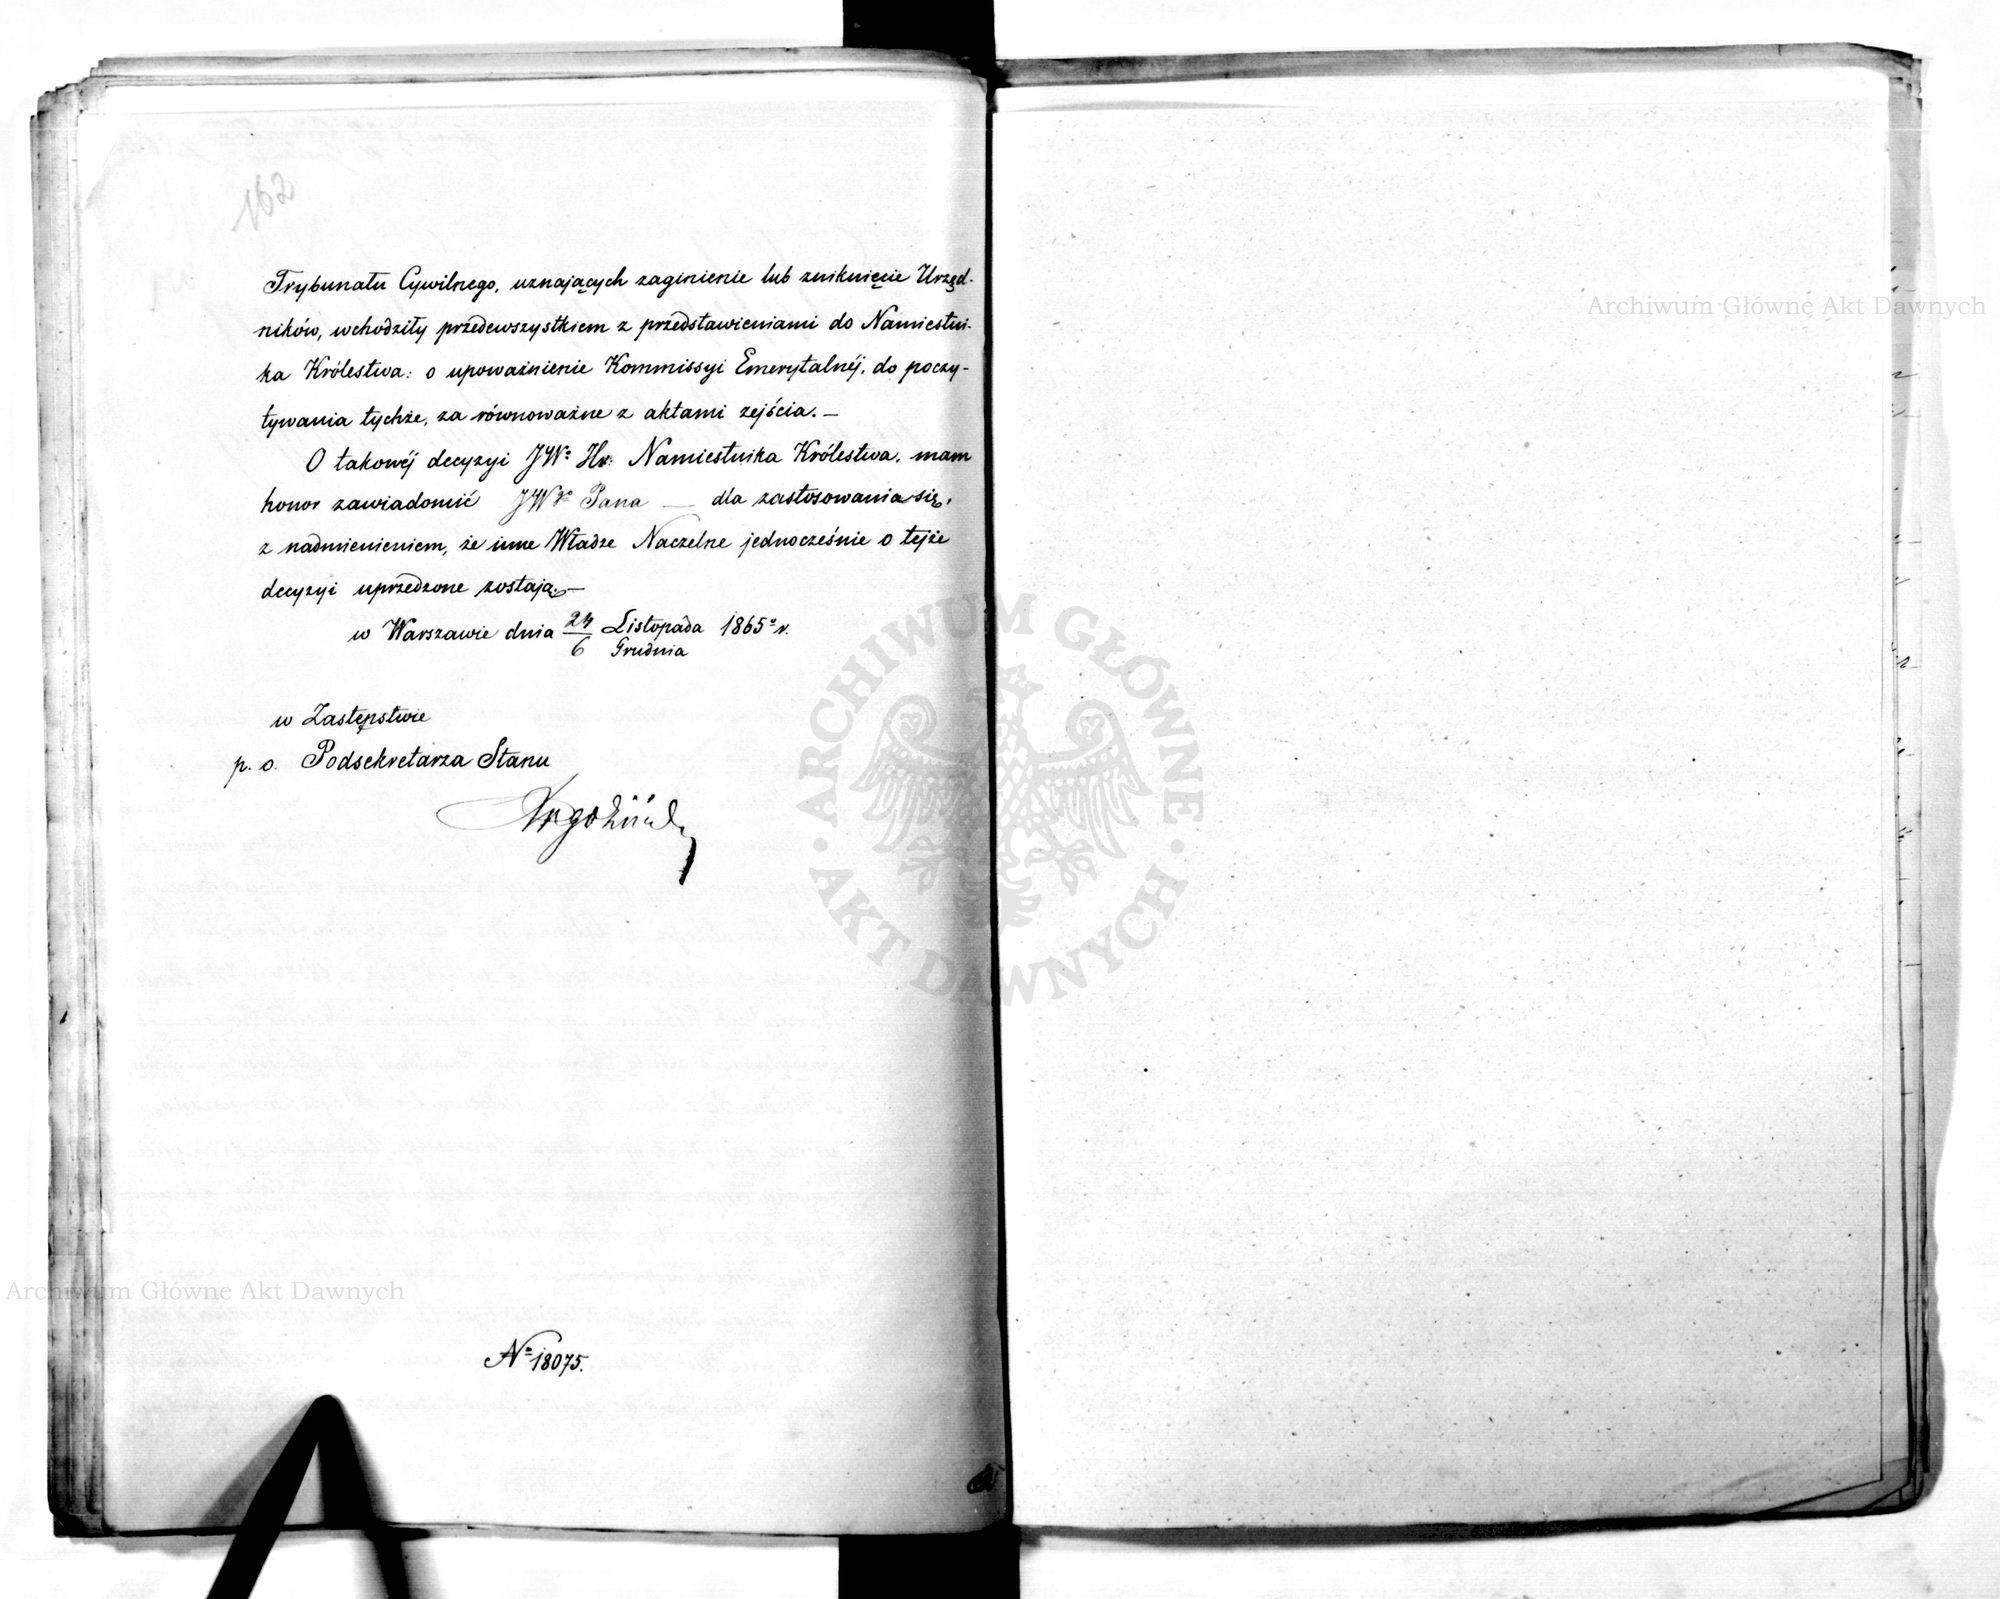 162
Trybunału Cywilnego, uznających zaginienie lub zniknięcie Urzęd-
ników, wchodziły przedewszystkiem z przedstawieniami do Namiestni-
ka Królestwa: o upoważnienie Kommissyi Emerytalnéj, do poczy-
tywania tychże, za równoważne z aktami zejścia. —
O takowéj decyzyi JWo Hr: Namiestnika Królestwa, mam
honor zawiadomić JWgo Pana — dla zastosowania się,
z nadmienieniem, że inne Władze Naczelne jednocześnie o tejże
decyzyi uprzedzone zostają. —
w Warszawie dnia 24/6 Listopada/Grudnia 1865o r.
w Zastępstwie
p. o. Podsekretarza Stanu
No 18075.
Archiwum Główne Akt Dawnych
ARCHIWUM GŁÓWNE · AKT DAWNYCH ·
Archiwum Główne Akt Dawnych